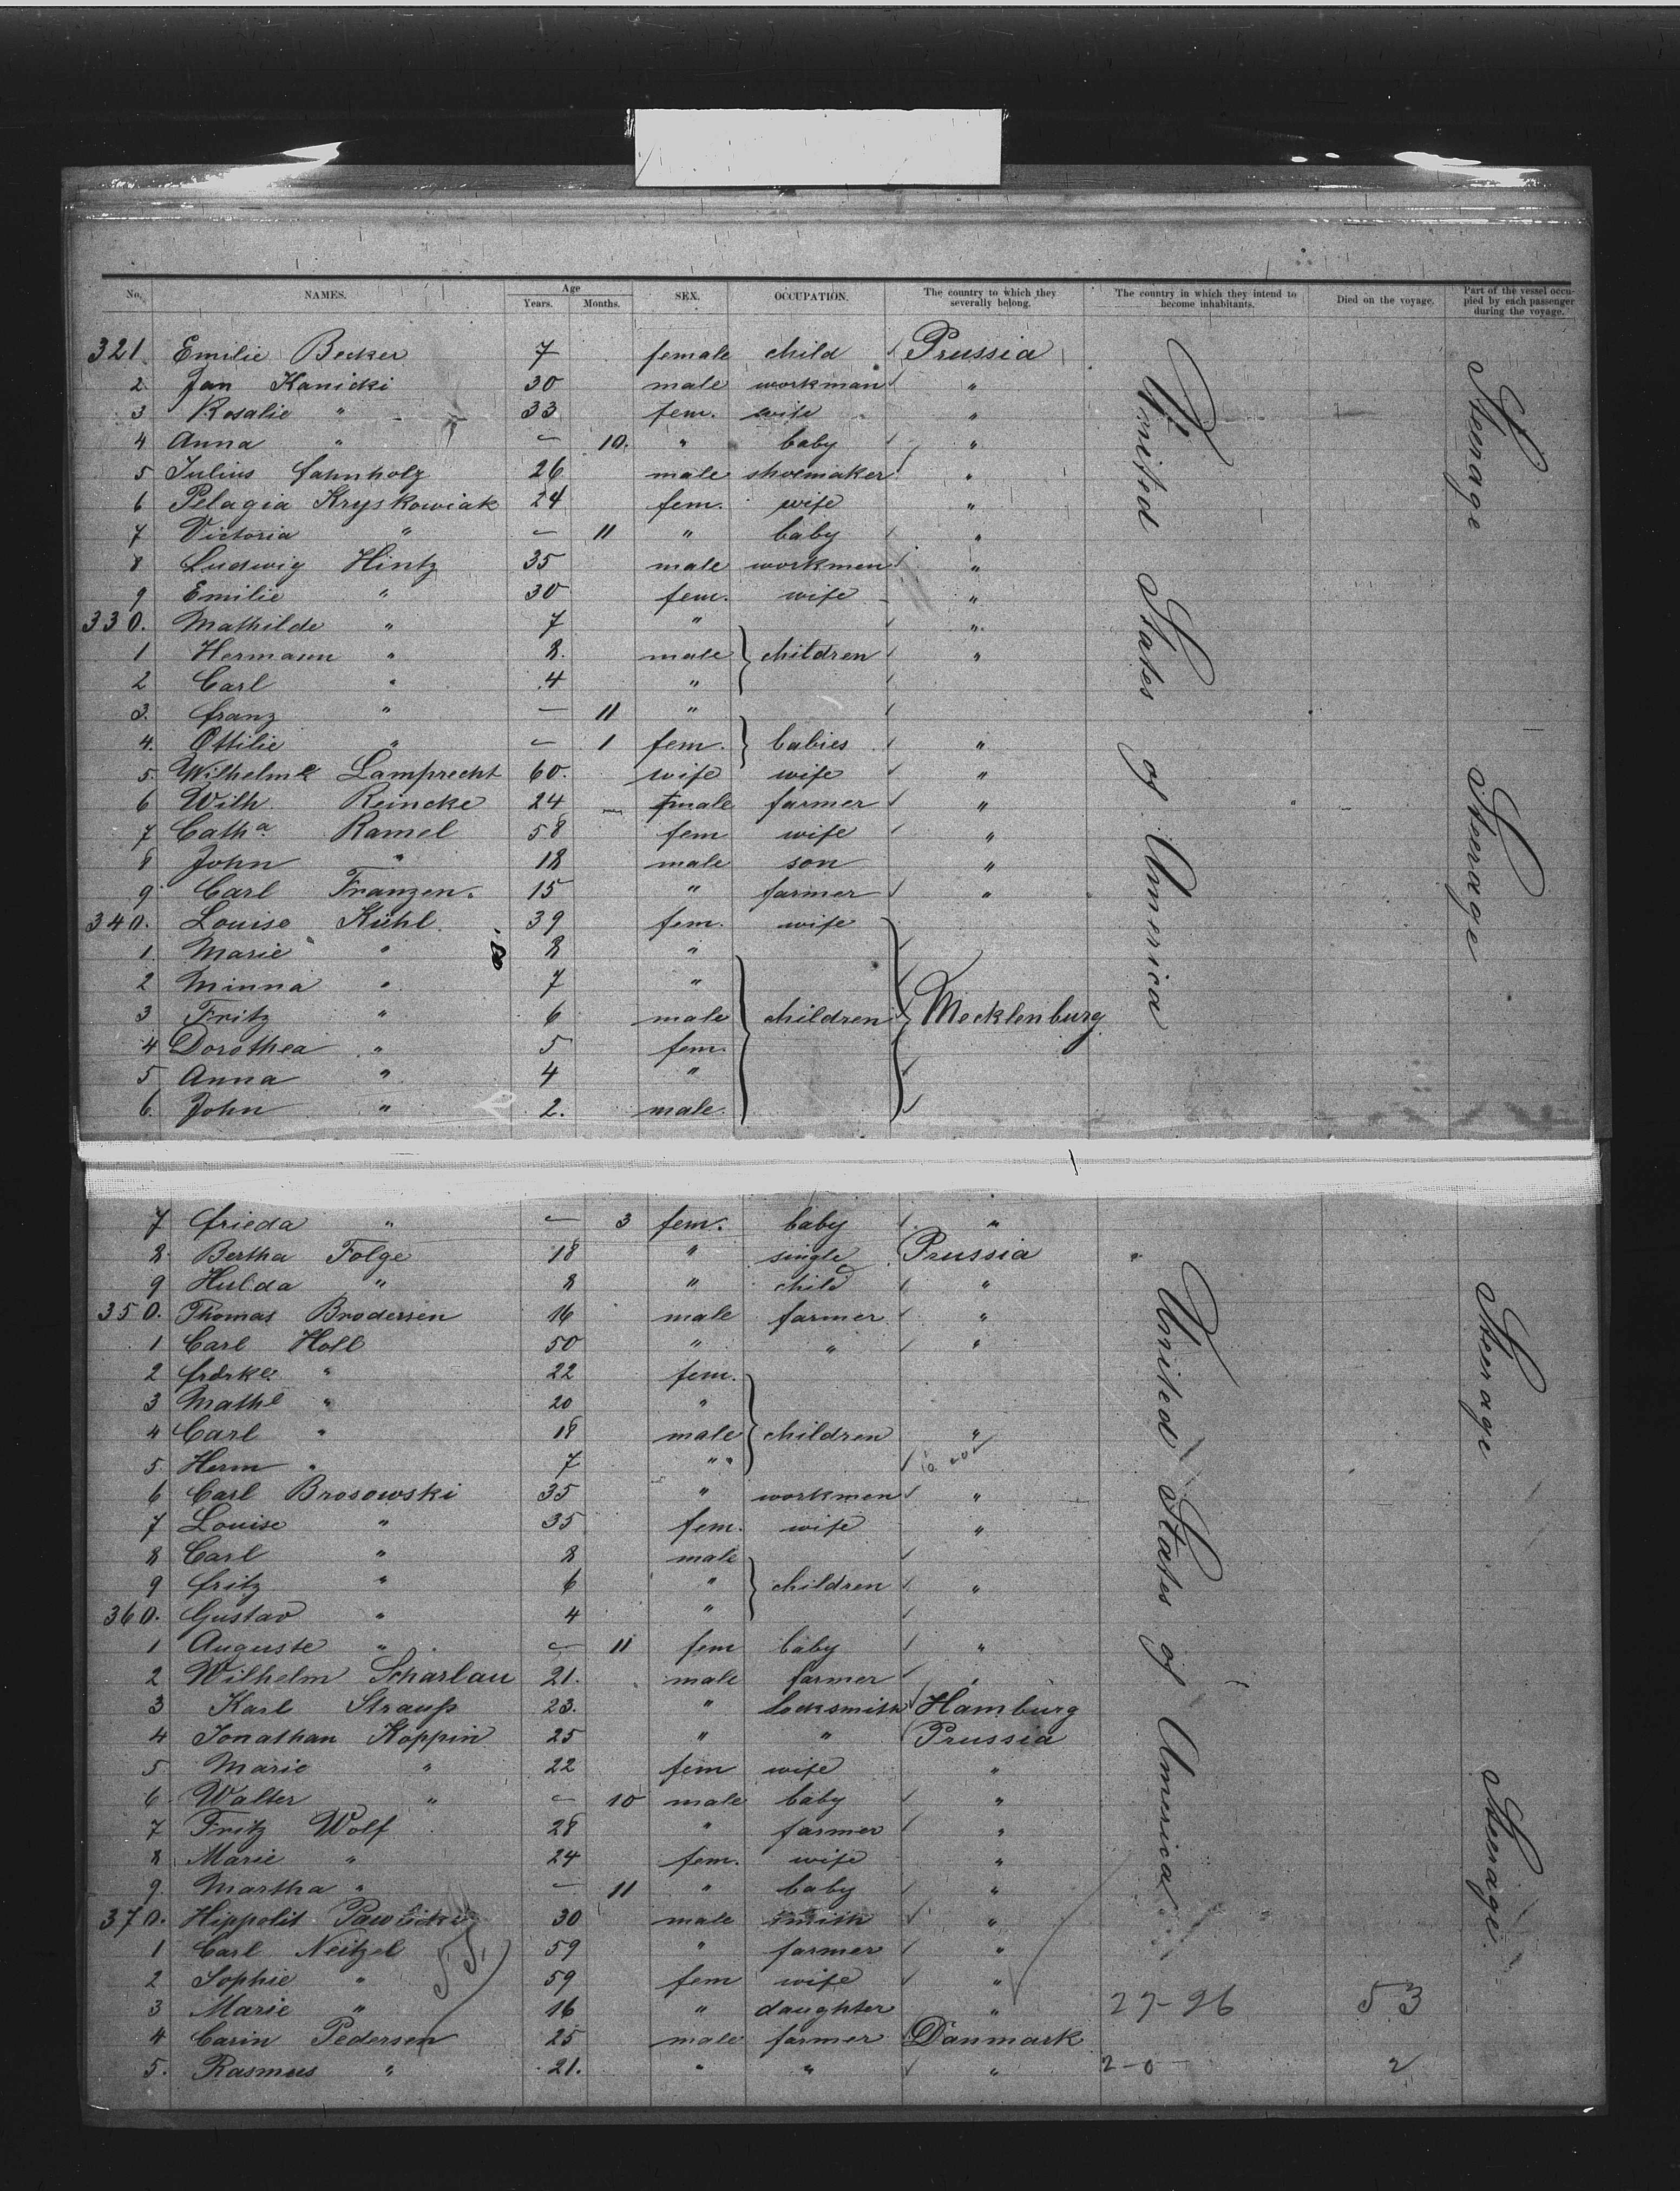 No. NAMES. Age Years. Months. SEX. OCCUPATION. The country to which they severally belong. The country in which they intend to become inhabitants. Died on the voyage. Part of the vessel occupied by each passenger during the voyage.
321. Emilie Becker 7 female child Prussia
2 Jan Kanicki 30 male workman "
3 Rosalie " 33 fem. wife "
4 Anna " — 10. " baby "
5 Julius Fahnholz 26 male shoemaker "
6 Pelagia Kryskowiak 24 fem. wife "
7 Victoria " — 11 " baby "
8 Ludwig Hintz 35 male workmen "
9 Emilie " 30 fem. wife "
330. Mathilde " 7 " "
1 Hermann " 8. male children "
2 Carl " 4 "
3. Franz " — 11 "
4. Ottilie " — 1 fem. babies "
5. Wilhelmε Lamprecht 60. wife wife "
6 Wilh. Reincke 24 male farmer "
7 Cathᵃ Ramel 58 fem wife "
8 John " 18 male son "
9 Carl Franzen. 15 " farmer "
340. Louise Kühl. 39 fem. wife
1 Marie " 8 "
2 Minna " 7 "
3 Fritz " 6 male children Mecklenburg
4 Dorothea " 5 fem.
5 Anna " 4 "
6. John " 2. male.
United States of America
Steerage
Steerage
7 Frieda " — 3 fem. baby "
8. Bertha Folge 18 " single Prussia "
9 Hulda " 8 " child "
350. Thomas Brodersen 16 male farmer "
1 Carl Holl 50 " " "
2 Frdrke " 22 fem.
3 Mathe " 20 "
4 Carl " 18 male children "
5. Herm " 7 "
6 Carl Brosowski 35 " workmen "
7 Louise " 35 fem. wife "
8 Carl " 8 male
9 Fritz " 6 " children "
360. Gustav " 4 "
1 Auguste " — 11 fem baby "
2 Wilhelm Scharlau 21. male farmer "
3 Karl Strauß 23. " locksmith Hamburg
4 Jonathan Köppin 25 " " Prussia
5 Marie " 22 fem wife "
6 Walter " — 10 male baby "
7 Fritz Wolf 28 " farmer "
8 Marie " 24 fem. wife "
9. Martha " — 11 " baby "
370. Hippolit 30 male smith "
1 Carl Neitzel 59 " farmer "
2 Sophie " 59 fem wife "
3 Marie " 16 " daughter " 27-26 53
4 Carin Pedersen 25 male farmer Danmark
5. Rasmus " 21. " " " 2-0 2
United States of America
Steerage
Steerage
55